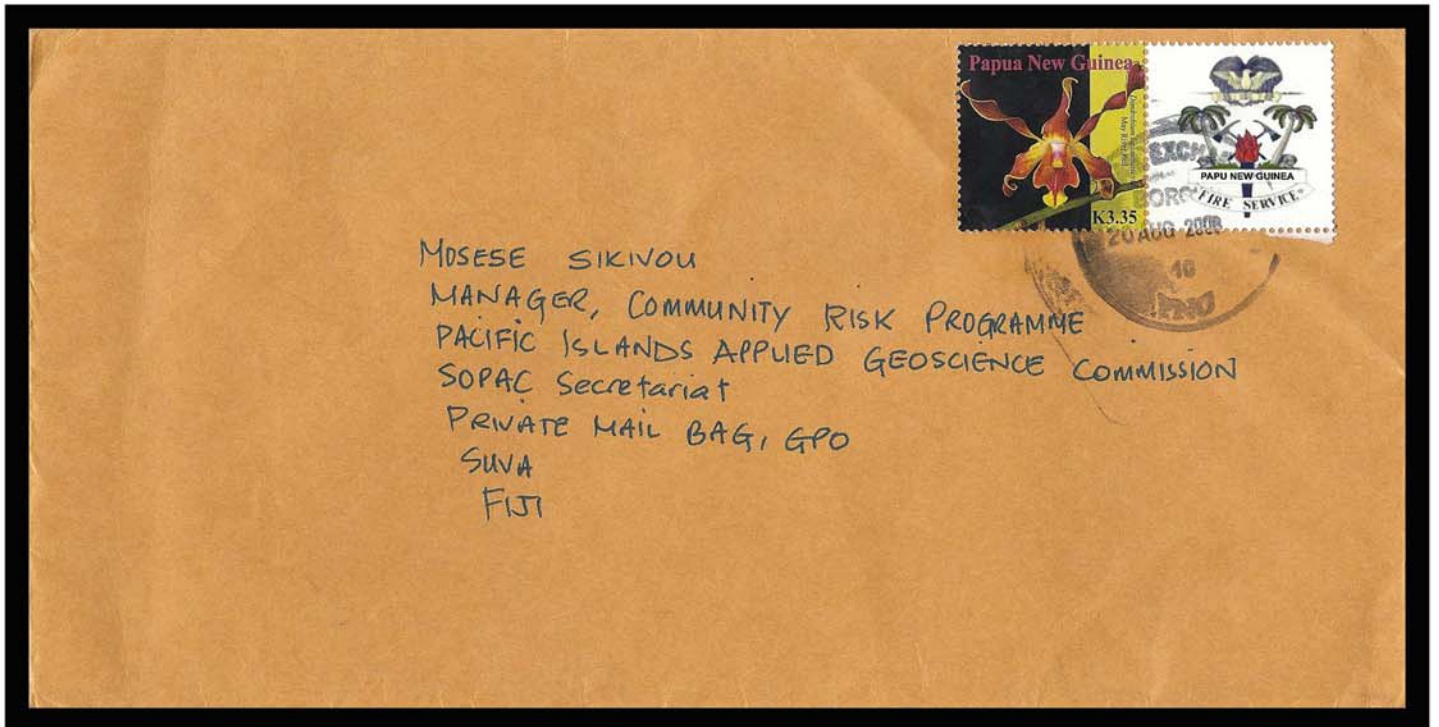 Papua New Guinea
May River Red
K3.35
PAPU NEW GUINEA
FIRE SERVICE
20 AUG 2008
MOSESE SIKIVOU
MANAGER, COMMUNITY RISK PROGRAMME
PACIFIC ISLANDS APPLIED GEOSCIENCE COMMISSION
SOPAC Secretariat
PRIVATE MAIL BAG, GPO
SUVA
FIJI